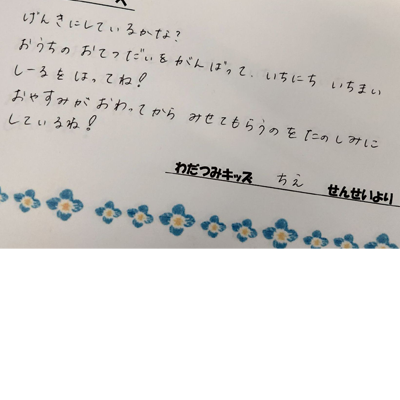 げんきにしているかな?
おうちの おてつだいをがんばって、いちにち いちまい
しーるを はってね!
おやすみが おわってから みせてもらうのを たのしみに
しているね!
わだつみキッズ ちえ せんせいより